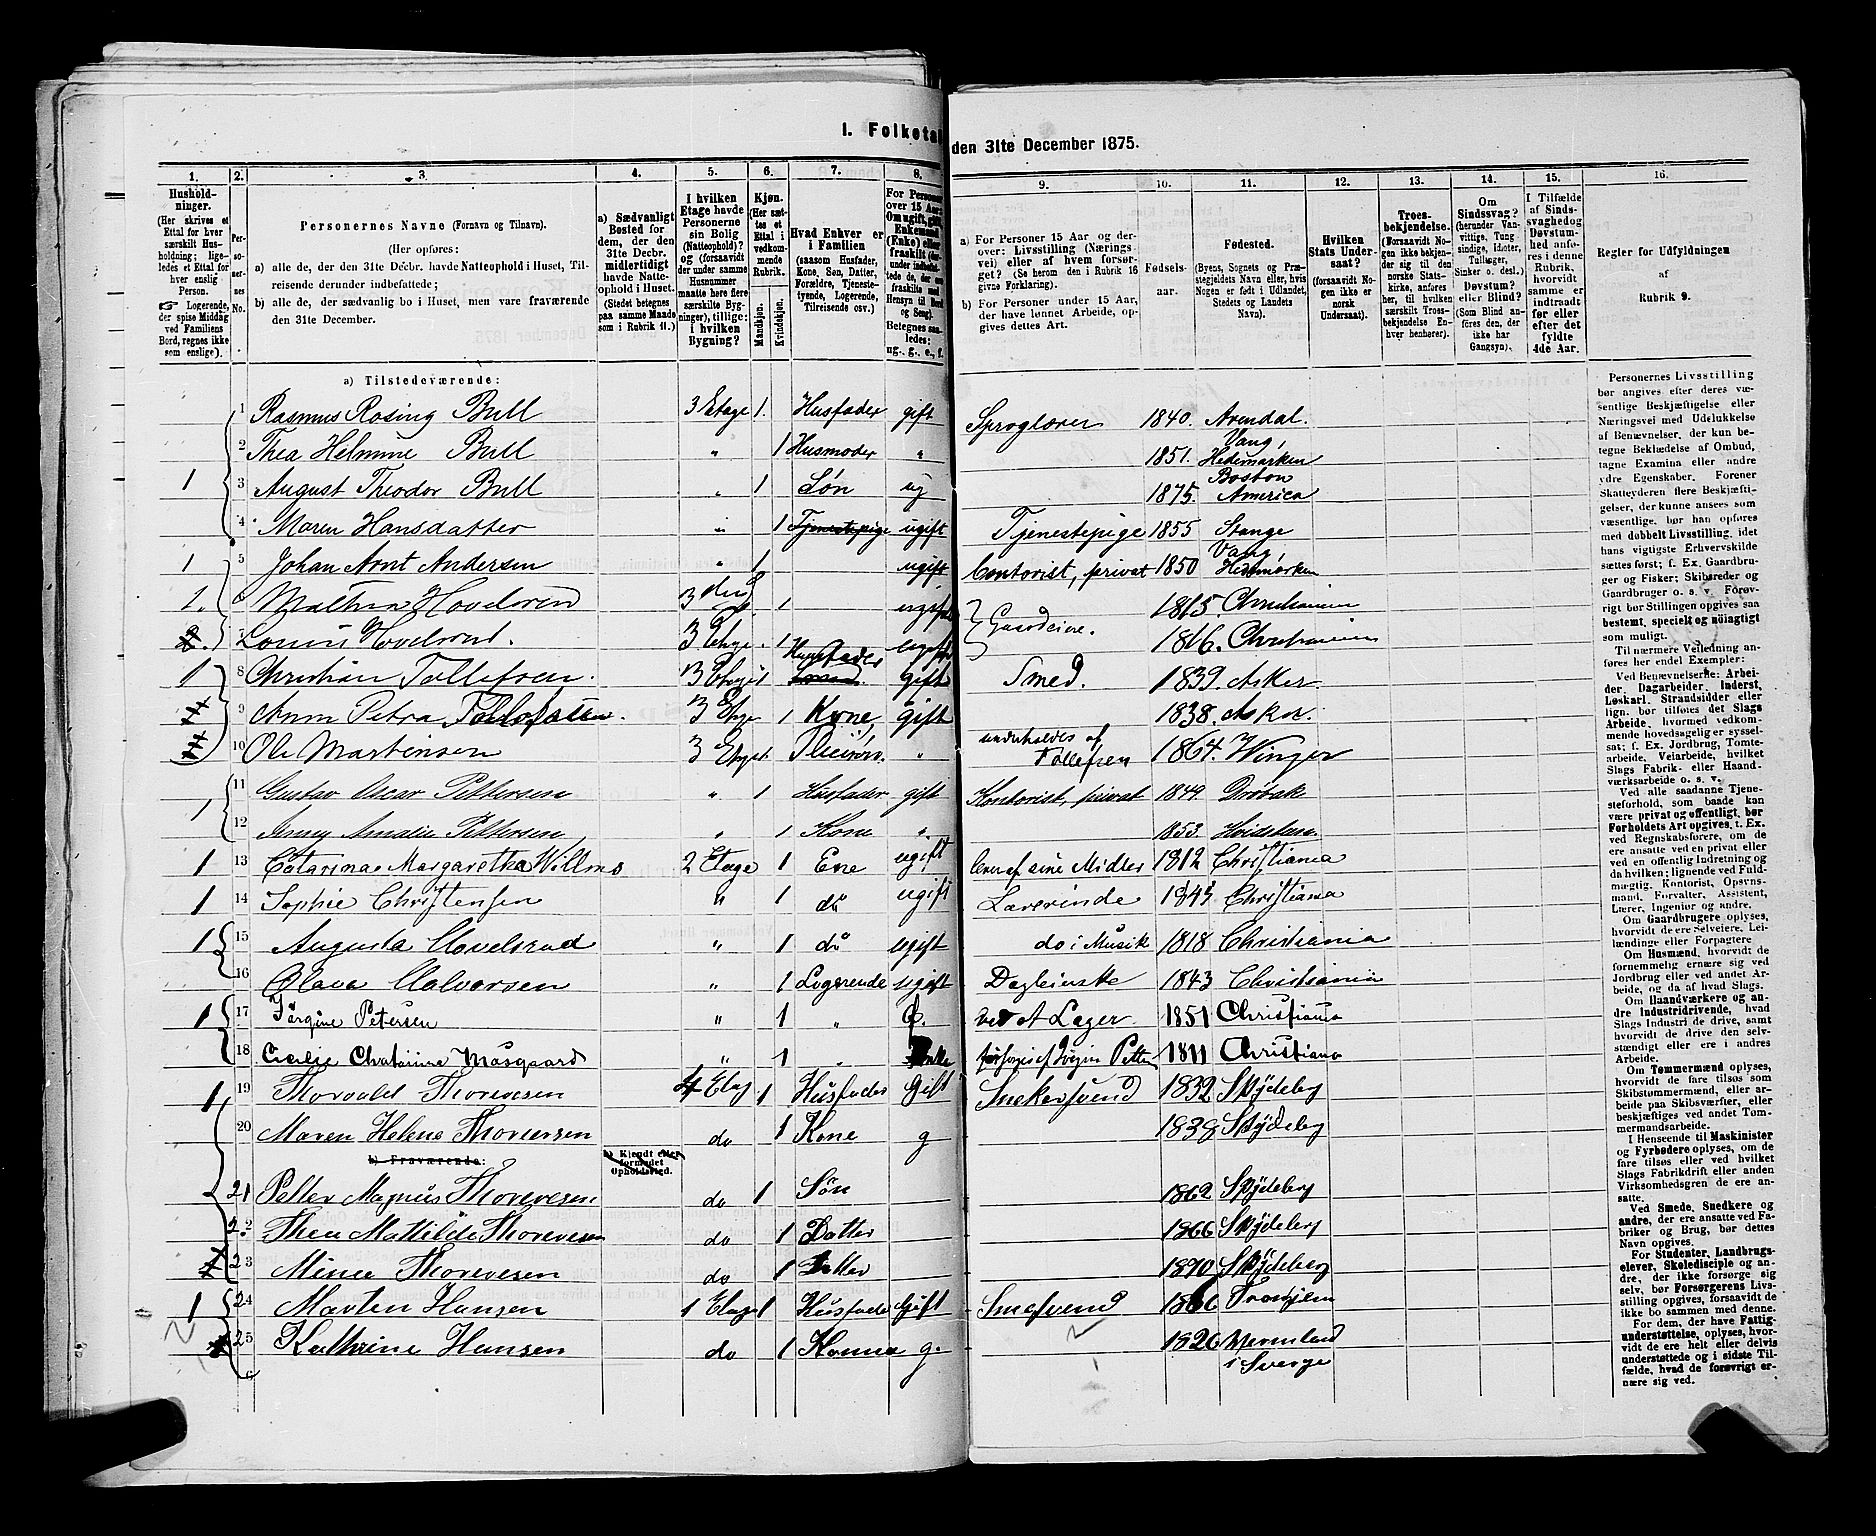 I. Folketal
den 31te December 1875.
1. 2. 3. 4. 5. 6. 7. 8. 9. 10. 11. 12. 13. 14. 15. 16.
Hushold-
ninger.
(Her skrives et
Ettal for hver
særskilt Hus-
holdning; lige-
ledes et Ettal for
hver enslig
Person.
☞ Logerende,
der spise Middag
ved Familiens
Bord, regnes ikke
som enslige).
Per-
so-
ner-
nes
No.
Personernes Navne (Fornavn og Tilnavn).
(Her opføres:
a) alle de, der den 31te Decbr. havde Natteophold i Huset, Til-
reisende derunder indbefattede;
b) alle de, der sædvanlig bo i Huset, men vare fraværende
den 31te December.
a) Sædvanligt
Bosted for
dem, der den
31te Decbr.
midlertidigt
havde Natte-
ophold i Huset.
(Stedet betegnes
paa samme Maade
som i Rubrik 11.)
I hvilken
Etage havde
Personerne
sin Bolig
(Natteophold)?
og (forsaavidt
der under samme
Husnummer
maatte høre flere
særskilte Byg-
ninger), tillige:
i hvilken
Bygning?
Kjøn.
(Her sæt-
tes et
Ettal i
vedkom-
mende
Rubrik.
Mandskjøn.
Kvindskjøn.
Hvad Enhver er
i Familien
(saasom Husfader,
Kone, Søn, Datter,
Forældre, Tjeneste-
tyende, Logerende,
Tilreisende osv.)
For Personer
over 15 Aar:
Om ugift, gift,
Enkemand
(Enke) eller
fraskilt
Betegnes saa-
ledes:
ug., g., e., f.
a) For Personer 15 Aar og der-
over: Livsstilling (Nærings-
vei) eller af hvem forsør-
get? (Se herom den i Rubrik 16
givne Forklaring).
b) For Personer under 15 Aar,
der have lønnet Arbeide, op-
gives dettes Art.
Fødsels-
aar.
Fødested.
(Byens, Sognets og Præ-
stegjeldets Navn eller, hvis
Nogen er født i Udlandet,
Stedets og Landets
Navn).
Hvilken
Stats Under-
saat?
(forsaavidt No-
gen ikke er
norsk
Undersaat).
Troes-
bekjendelse.
(Forsaavidt No-
gen ikke bekjen-
der sig til den
norske Stats-
kirke, anføres
her, til hvilken
særskilt Tros-
bekjendelse En-
hver henhører).
Om
Sindssvag?
(herunder Van-
vittige, Tung-
sindige, Idioter,
Tullinger,
Sinker o. desl.)
Døvstum?
eller Blind?
(Som Blind an-
føres den, der
ikke har
Gangsyn).
I Tilfælde
af Sinds-
svaghed og
Døvstum-
hed anfø-
res i denne
Rubrik,
hvorvidt
samme er
indtraadt
før eller
efter det
fyldte
4de Aar.
Regler for Udfyldningen
af
Rubrik 9.
a) Tilstedeværende:
1 Rasmus Rosing Bull 3 Etage 1. Husfader gift Sproglærer 1840. Arendal.
2 Thea Helmine Bull " 1 Husmoder " 1851. Vang, Hedemarken
1 3 August Theodor Bull " 1 Søn ug 1875. Boston America
4 Maren Hansdatter " 1 Tjenestepige ugift Tjenestepige 1855 Stange
1 5 Johan Arnt Andersen " 1 ugift Contorist, privat 1850 Vang, Hedemarken
1. 6 Mathia Hovelsrud 3 1 ugift Gaardeiere. 1815 Christiania
2. 7 Hovelsrud. 3 Etage. 1 ugift 1816. Christiania
1 8 Christian Tollefsen. 3 Etage 1 Husfader Gift Smed. 1839. Asker.
9 Ann Petra Tollefsen. 3 Etage 1 Kone, gift 1838. Asker.
10 Ole Martinsen 3 Etage 1 Pleiesøn. " underholdes af Tollefsen 1864. Winger
1 11 Gustav Oscar Pettersen " 1 Husfader gift Kontorist, privat 1849. Drøbak
12 Jenny Amalie Pettersen " 1 Kone " 1853. Hvidsten
1 13 Catarina Margaretha Willms 2 Etage 1 Ene ugift lever af sine Midler 1812 Christiania
1 14 Sophie Christensen " 1 do ugift Lærerinde 1843 Christiania
1 15 Augusta Hovelsrud " 1 do ugift do i Musik 1818 Christiania
16 Olava Halvorsen " 1 Logerende ugift 1843 Christiania
1 17 Jørgine Petersen " 1 " ved et Lager 1851 Christiania
18 Cicilje Chatarine Mosgaard " 1 " Enke forsørges af Jørgin Petter 1811 Christiania
1 19 Thorvald Thorvesen 4 Etag 1 Husfader Gift Snekersvend 1832 Skydeberg
20 Maren Helene Thorvesen do 1 Kone g 1838 Skydeberg
b) Fraværende:
b) Kjendt eller
formodet
Opholdssted.
21 Petter Magnus Thorvesen do 1 Søn 1862 Skydeberg
22 Thea Mathilde Thorvesen do 1 Datter 1866 Skydeberg
23 Mina Thorvesen do 1 Datter 1870 Skydeberg
1 24 Marten Hansen 1 Etage 1 Husfader Gift Trondhjem
25 Kathrine Hansen do 1 Konne g. 1826 Wermland i Sverge
Personernes Livsstilling
bør angives efter deres væ-
sentlige Beskjæftigelse eller
Næringsvei med Udelukkelse
af Benævnelser, der kun be-
tegne Beklædelse af Ombud,
tagne Examina eller andre
ydre Egenskaber. Forener
Skatteyderen flere Beskjæfti-
gelser, der kunne ansees som
væsentlige, bør han opføres
med dobbelt Livsstilling, idet
hans vigtigste Erhvervskilde
sættes først; f. Ex. Gaardbru-
ger og Fisker; Skibsreder og
Gaardbruger o. s. v. Forøv-
rigt bør Stillingen opgives saa
bestemt, specielt og nøiagtigt
som muligt.
Til nærmere Veiledning an-
føres her endel Exempler:
Ved Benævnelserne: Arbei-
der, Dagarbeider, Inderst,
Løskarl, Strandsidder eller
lign. bør tilføies det Slags
Arbeide, hvormed vedkom-
mende hovedsagelig er syssel-
sat; f. Ex. Jordbrug, Tomte-
arbeide, Veiarbeide, hvilket
Slags Fabrik- eller Haand-
værksarbeide o. s. v.
Ved alle saadanne Tjene-
steforhold, som baade kan
være privat og offentligt, bør
Forholdets Art opgives, t. Ex.
ved Regnskabsførere, om de
ere ansatte ved en privat eller
ved en offentlig Indretning og
da hvilken; lignende ved Fuld-
mægtig, Kontorist, Opsyns-
mand, Forvalter, Assistent,
Lærer, Ingeniør og andre.
Om Gaardbrugere oplyses,
hvorvidt de ere Selveiere, Lei-
lændinge eller Forpagtere
Om Husmænd, hvorvidt de
fornemmelig ernære sig ved
Jordbrug eller ved andet Ar-
beide, og da af hvad Slags.
Om Haandværkere og an-
dre Industridrivende, hvad
Slags Industri de drive, samt
hvorvidt de drive den selv-
stændigt eller ere i andres
Arbeide.
Om Tømmermænd oplyses,
hvorvidt de fare tilsøs som
Skibstømmermænd, eller ar-
beide paa Skibsværfter, eller
beskjæftiges ved andet Tøm-
mermandsarbeide.
I Henseende til Maskinister
og Fyrbødere oplyses, om de
fare tilsøs eller ved hvilket
Slags Fabrikdrift eller anden
Virksomhedsgren de ere an-
satte.
Ved Smede, Snedkere og
andre, der ere ansatte ved Fa-
briker og Brug, bør dettes
Navn opgives.
For Studenter, Landbrugs-
elever, Skoledisciple og an-
dre, der ikke forsørge sig
selv, bør Forsørgerens Livs-
stilling opgives, forsaavidt de
ikke bo sammen med denne.
For dem, der have Fattig-
understøttelse, oplyses, hvor-
vidt de ere helt eller delvis
understøttede og i sidste Til-
fælde, hvad de forøvrigt er-
nære sig ved.